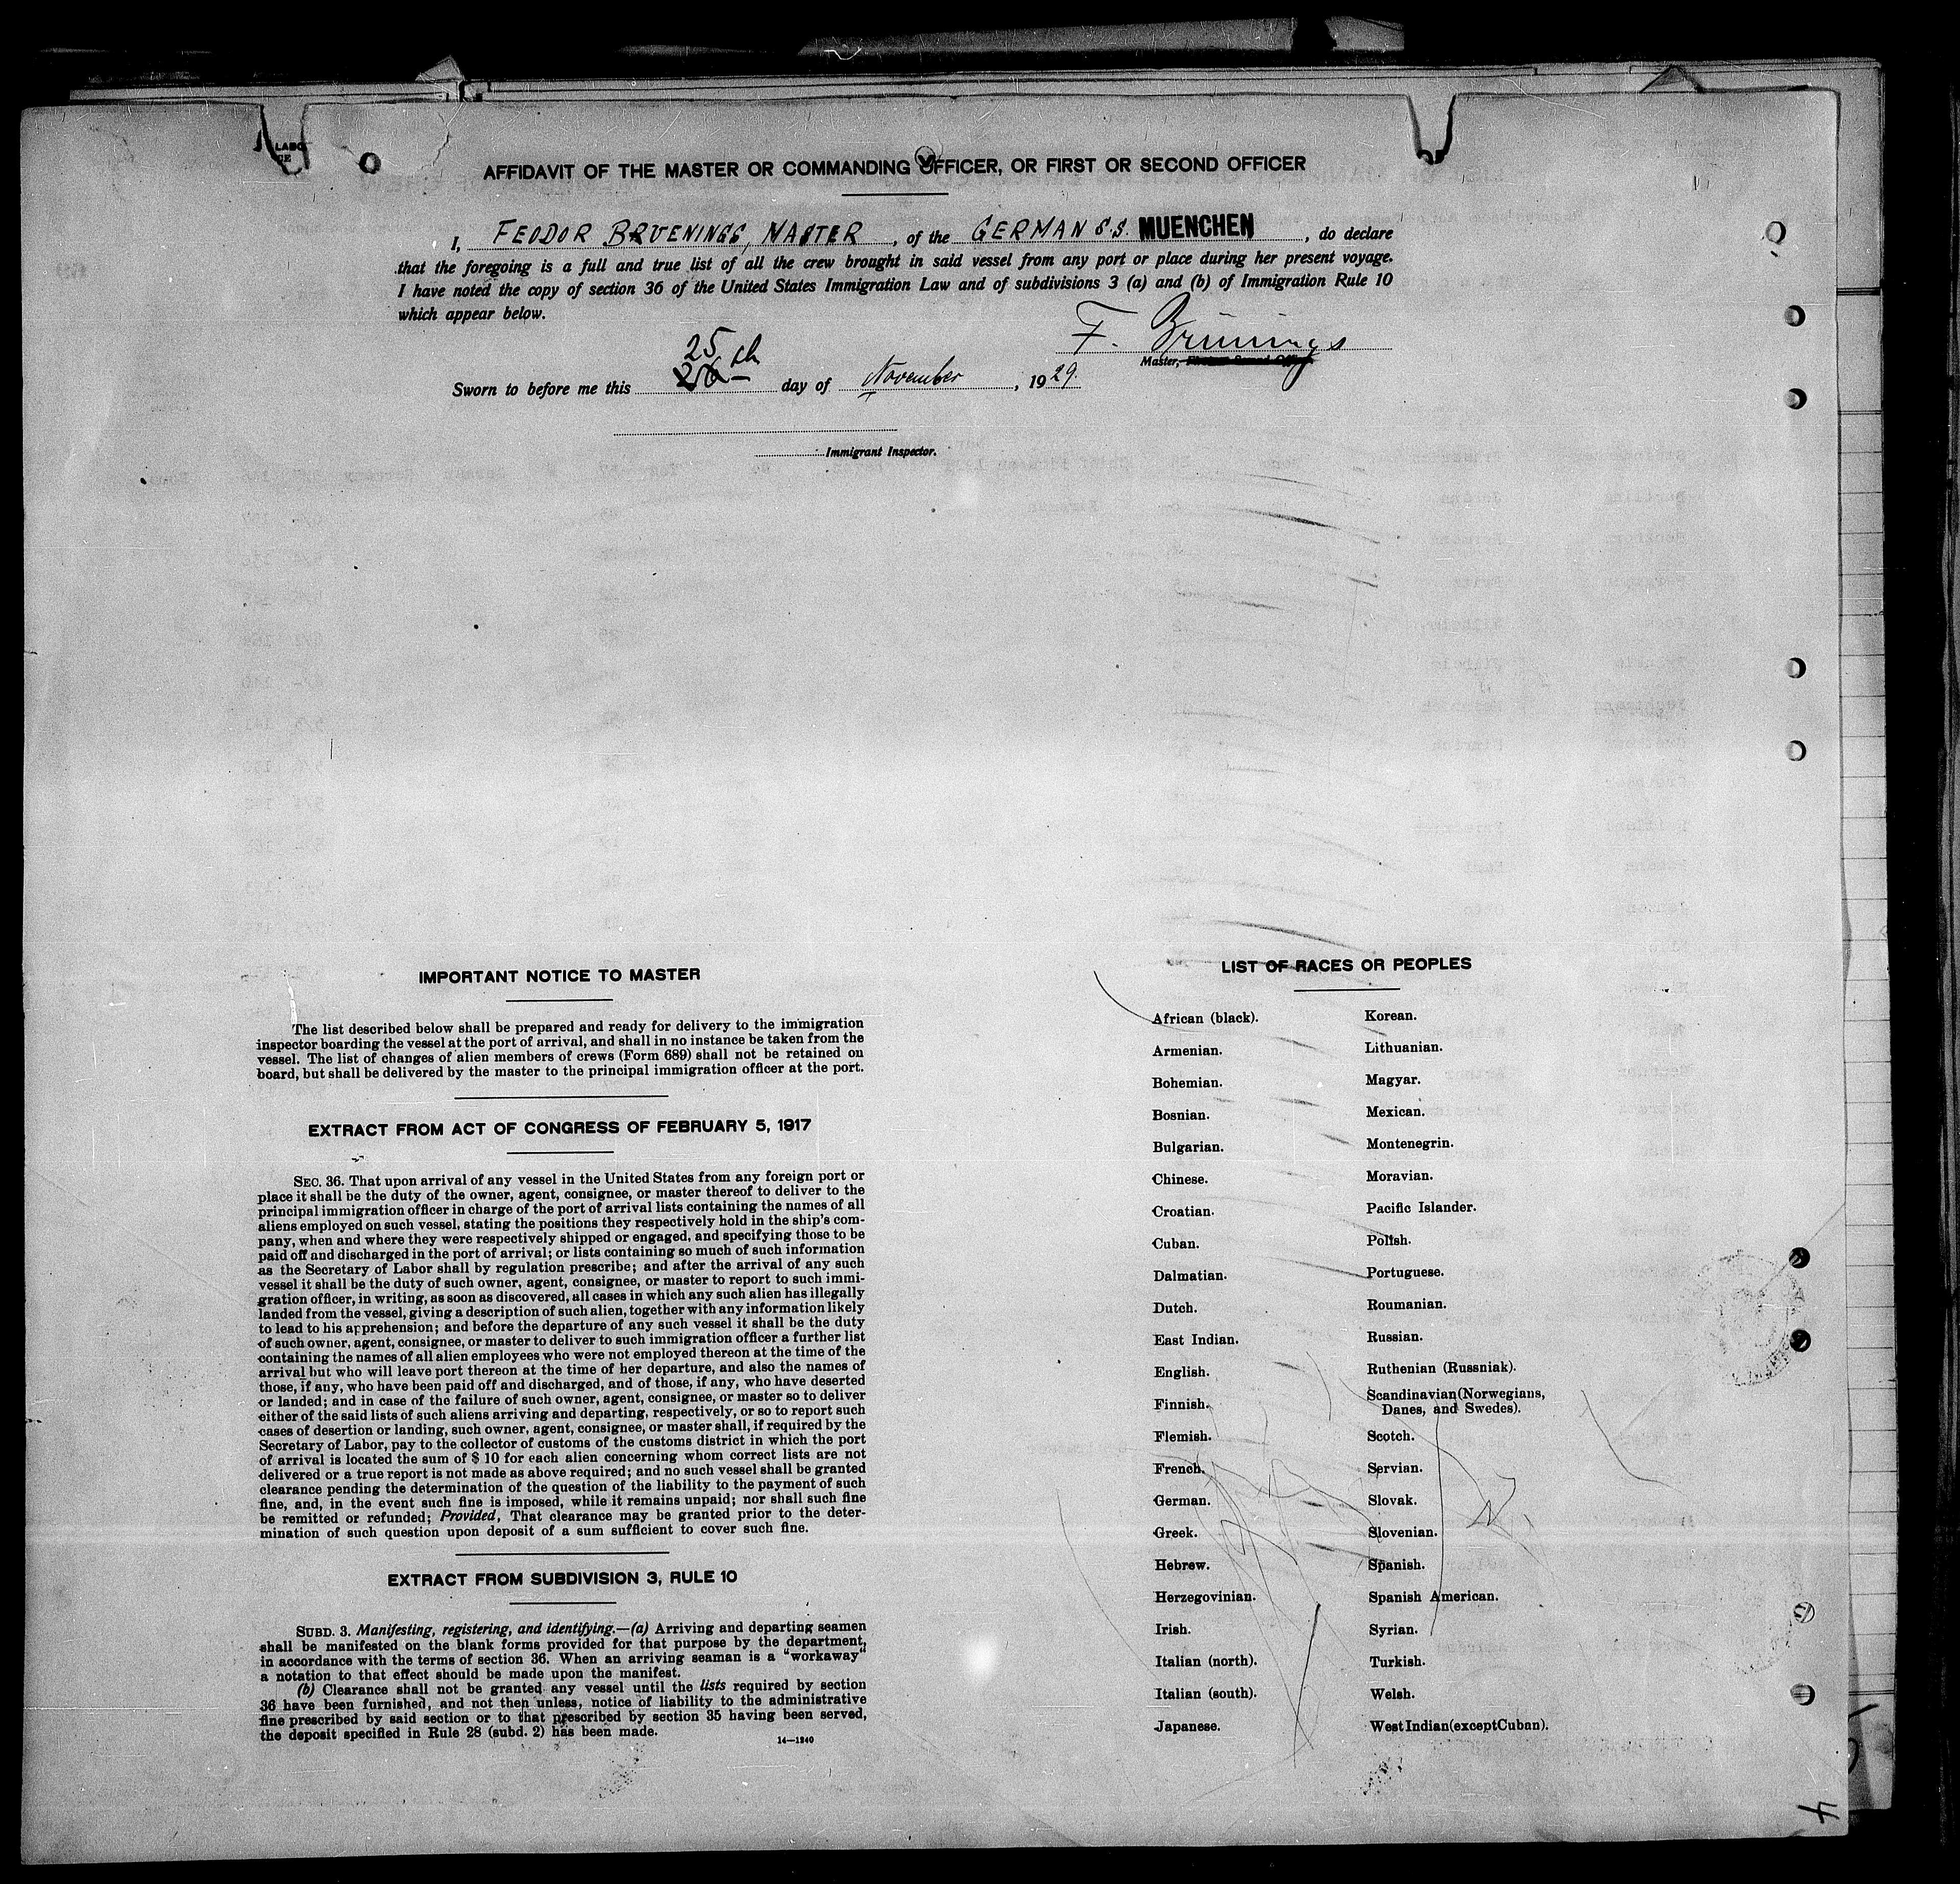 AFFIDAVIT OF THE MASTER OR COMMANDING OFFICER, OR FIRST OR SECOND OFFICER
I, FEODOR BRUENINGS, MASTER, of the GERMAN S.S. MUENCHEN, do declare
that the foregoing is a full and true list of all the crew brought in said vessel from any port or place during her present voyage.
I have noted the copy of section 36 of the United States Immigration Law and of subdivisions 3 (a) and (b) of Immigration Rule 10
which appear below.
F. Brünings
Master,
25th
Sworn to before me this 26 day of November, 1929.
Immigrant Inspector.
IMPORTANT NOTICE TO MASTER
The list described below shall be prepared and ready for delivery to the immigration
inspector boarding the vessel at the port of arrival, and shall in no instance be taken from the
vessel. The list of changes of alien members of crews (Form 689) shall not be retained on
board, but shall be delivered by the master to the principal immigration officer at the port.
EXTRACT FROM ACT OF CONGRESS OF FEBRUARY 5, 1917
SEC. 36. That upon arrival of any vessel in the United States from any foreign port or
place it shall be the duty of the owner, agent, consignee, or master thereof to deliver to the
principal immigration officer in charge of the port of arrival lists containing the names of all
aliens employed on such vessel, stating the positions they respectively hold in the ship's com-
pany, when and where they were respectively shipped or engaged, and specifying those to be
paid off and discharged in the port of arrival; or lists containing so much of such information
as the Secretary of Labor shall by regulation prescribe; and after the arrival of any such
vessel it shall be the duty of such owner, agent, consignee, or master to report to such immi-
gration officer, in writing, as soon as discovered, all cases in which any such alien has illegally
landed from the vessel, giving a description of such alien, together with any information likely
to lead to his apprehension; and before the departure of any such vessel it shall be the duty
of such owner, agent, consignee, or master to deliver to such immigration officer a further list
containing the names of all alien employees who were not employed thereon at the time of the
arrival but who will leave port thereon at the time of her departure, and also the names of
those, if any, who have been paid off and discharged, and of those, if any, who have deserted
or landed; and in case of the failure of such owner, agent, consignee, or master so to deliver
either of the said lists of such aliens arriving and departing, respectively, or so to report such
cases of desertion or landing, such owner, agent, consignee, or master shall, if required by the
Secretary of Labor, pay to the collector of customs of the customs district in which the port
of arrival is located the sum of $ 10 for each alien concerning whom correct lists are not
delivered or a true report is not made as above required; and no such vessel shall be granted
clearance pending the determination of the question of the liability to the payment of such
fine, and, in the event such fine is imposed, while it remains unpaid; nor shall such fine
be remitted or refunded; Provided, That clearance may be granted prior to the deter-
mination of such question upon deposit of a sum sufficient to cover such fine.
EXTRACT FROM SUBDIVISION 3, RULE 10
SUBD. 3. Manifesting, registering, and identifying.—(a) Arriving and departing seamen
shall be manifested on the blank forms provided for that purpose by the department,
in accordance with the terms of section 36. When an arriving seaman is a "workaway"
a notation to that effect should be made upon the manifest.
(b) Clearance shall not be granted any vessel until the lists required by section
36 have been furnished, and not then unless, notice of liability to the administrative
fine prescribed by said section or to that prescribed by section 35 having been served,
the deposit specified in Rule 28 (subd. 2) has been made.
14—1240
LIST OF RACES OR PEOPLES
African (black).
Armenian.
Bohemian.
Bosnian.
Bulgarian.
Chinese.
Croatian.
Cuban.
Dalmatian.
Dutch.
East Indian.
English.
Finnish.
Flemish.
French.
German.
Greek.
Hebrew.
Herzegovinian.
Irish.
Italian (north).
Italian (south).
Japanese.
Korean.
Lithuanian.
Magyar.
Mexican.
Montenegrin.
Moravian.
Pacific Islander.
Polish.
Portuguese.
Roumanian.
Russian.
Ruthenian (Russniak).
Scandinavian (Norwegians,
Danes, and Swedes).
Scotch.
Servian.
Slovak.
Slovenian.
Spanish.
Spanish American.
Syrian.
Turkish.
Welsh.
West Indian (except Cuban).